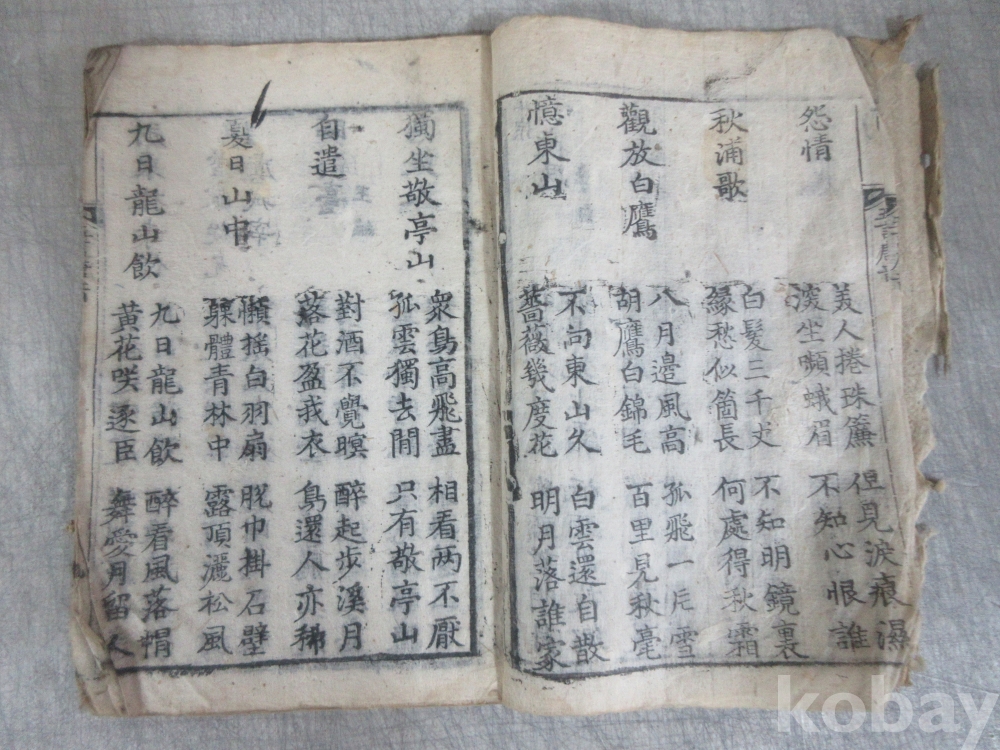 怨情
美人捲珠簾
深坐嚬蛾眉
但見淚痕濕
不知心恨誰
秋浦歌
白髮三千丈
緣愁似箇長
不知明鏡裏
何處得秋霜
觀放白鷹
八月邊風高
胡鷹白錦毛
孤飛一片雪
百里見秋毫
憶東山
不向東山久
薔薇幾度花
白雲還自散
明月落誰家
獨坐敬亭山
衆鳥高飛盡
孤雲獨去閒
相看两不厭
只有敬亭山
自遣
對酒不覺暝
落花盈我衣
醉起步溪月
鳥還人亦稀
夏日山中
懶搖白羽扇
躶體青林中
脫巾掛石壁
露頂灑松風
九日龍山飲
九日龍山飲
黃花咲逐臣
醉看風落帽
舞愛月留人
kobay